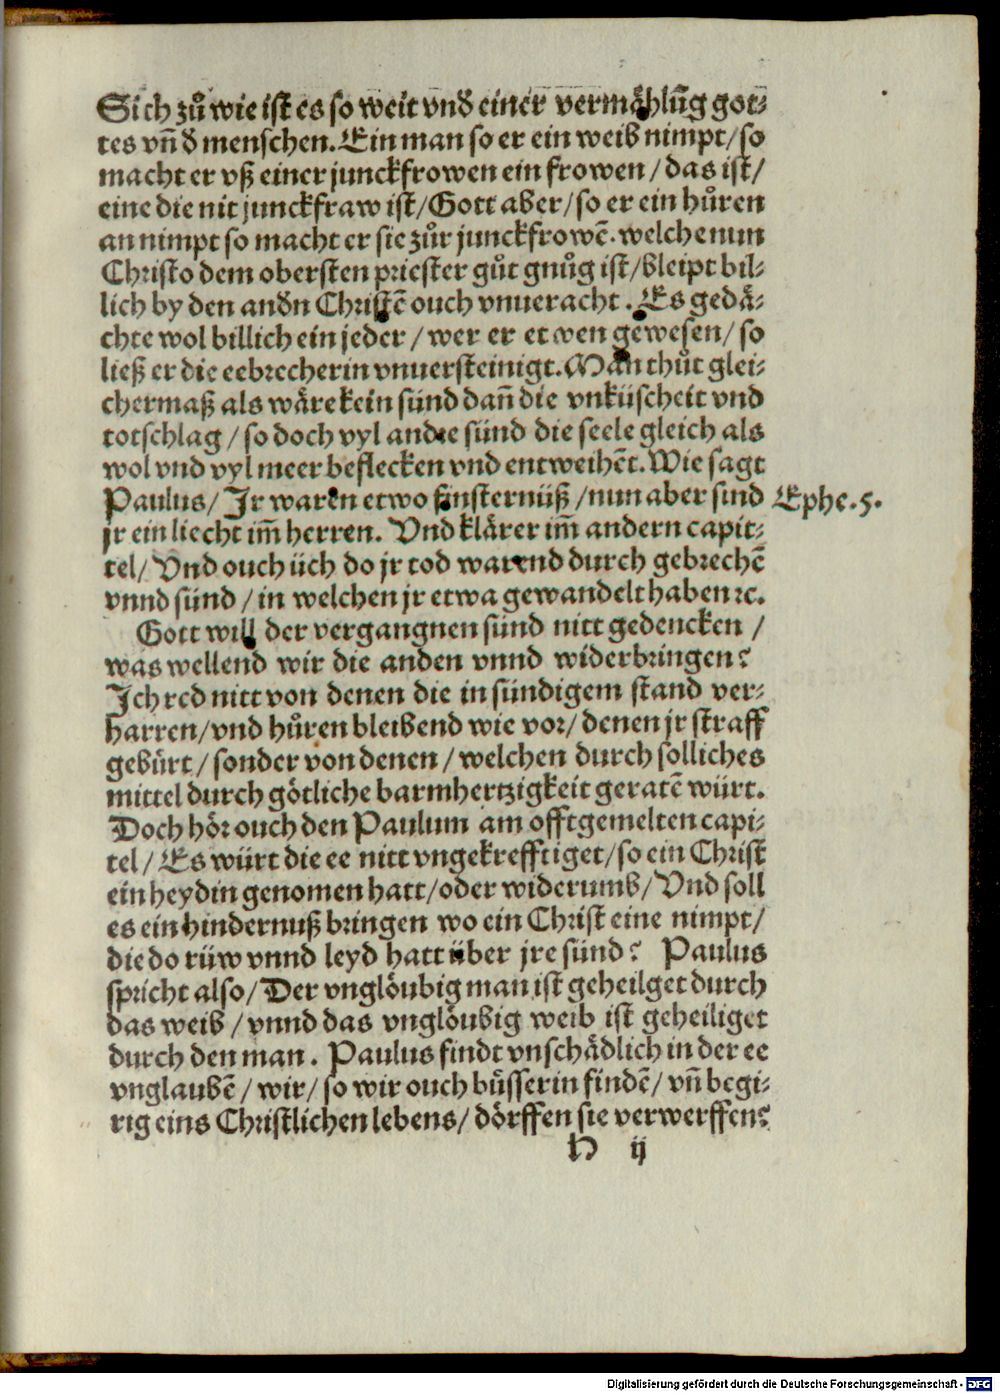 Sich zů wie ist es so weit vnd̕ einer vermählūg got⸗
tes vn̄ d̕ menschen. Ein man so er ein weib nimpt/ so
macht er vß einer junckfrowen ein frowen / das ist/
eine die nit junckfraw ist/ Gott aber/ so er ein hůren
an nimpt so macht er sie zůr junckfrowē. welche nun
Christo dem obersten priester gůt gnůg ist/ bleipt bil⸗
lich by den andn̕ Christē ouch vnueracht. Es gedä⸗
chte wol billich ein jeder / wer er etwen gewesen/ so
ließ er die eebrecherin vnuersteinigt. Man thůt glei⸗
chermaß als wäre kein sünd dañ die vnküscheit vnd
totschlag / so doch vyl andre sünd die seele gleich als
wol vnd vyl meer beflecken vnd entweihēt. Wie sagt
Paulus/ Jr waren etwo finsternüß / nun aber sind
Ephe. 5.
jr ein liecht im̄ herren. Vnd klärer im̄ andern capit⸗
tel/ Vnd ouch üch do jr tod warend durch gebrechē
vnnd sünd / in welchen jr etwa gewandelt haben ꝛc.
Gott will der vergangnen sünd nitt gedencken /
was wellend wir die anden vnnd widerbringen?
Ich red nitt von denen die in sündigem stand ver⸗
harren/ vnd hůren bleibend wie vor/ denen jr straff
gebürt/ sonder von denen / welchen durch solliches
mittel durch götliche barmhertzigkeit geratē würt.
Doch hör ouch den Paulum am offtgemelten capi⸗
tel/ Es würt die ee nitt vngekrefftiget/ so ein Christ
ein heydin genomen hatt/ oder widerumb/ Vnd soll
es ein hindernuß bringen wo ein Christ eine nimpt/
die do rüw vnnd leyd hatt über jre sünd? Paulus
spricht also/ Der vnglöubig man ist geheilget durch
das weib / vnnd das vnglöubig weib ist geheiliget
durch den man. Paulus findt vnschädlich in der ee
vnglaubē / wir/ so wir ouch bůsserin findē/ vn̄ begi⸗
rig eins Christlichen lebens/ dörffen sie verwerffen?
H ij
Digitalisierung gefördert durch die Deutsche Forschungsgemeinschaft - DFG